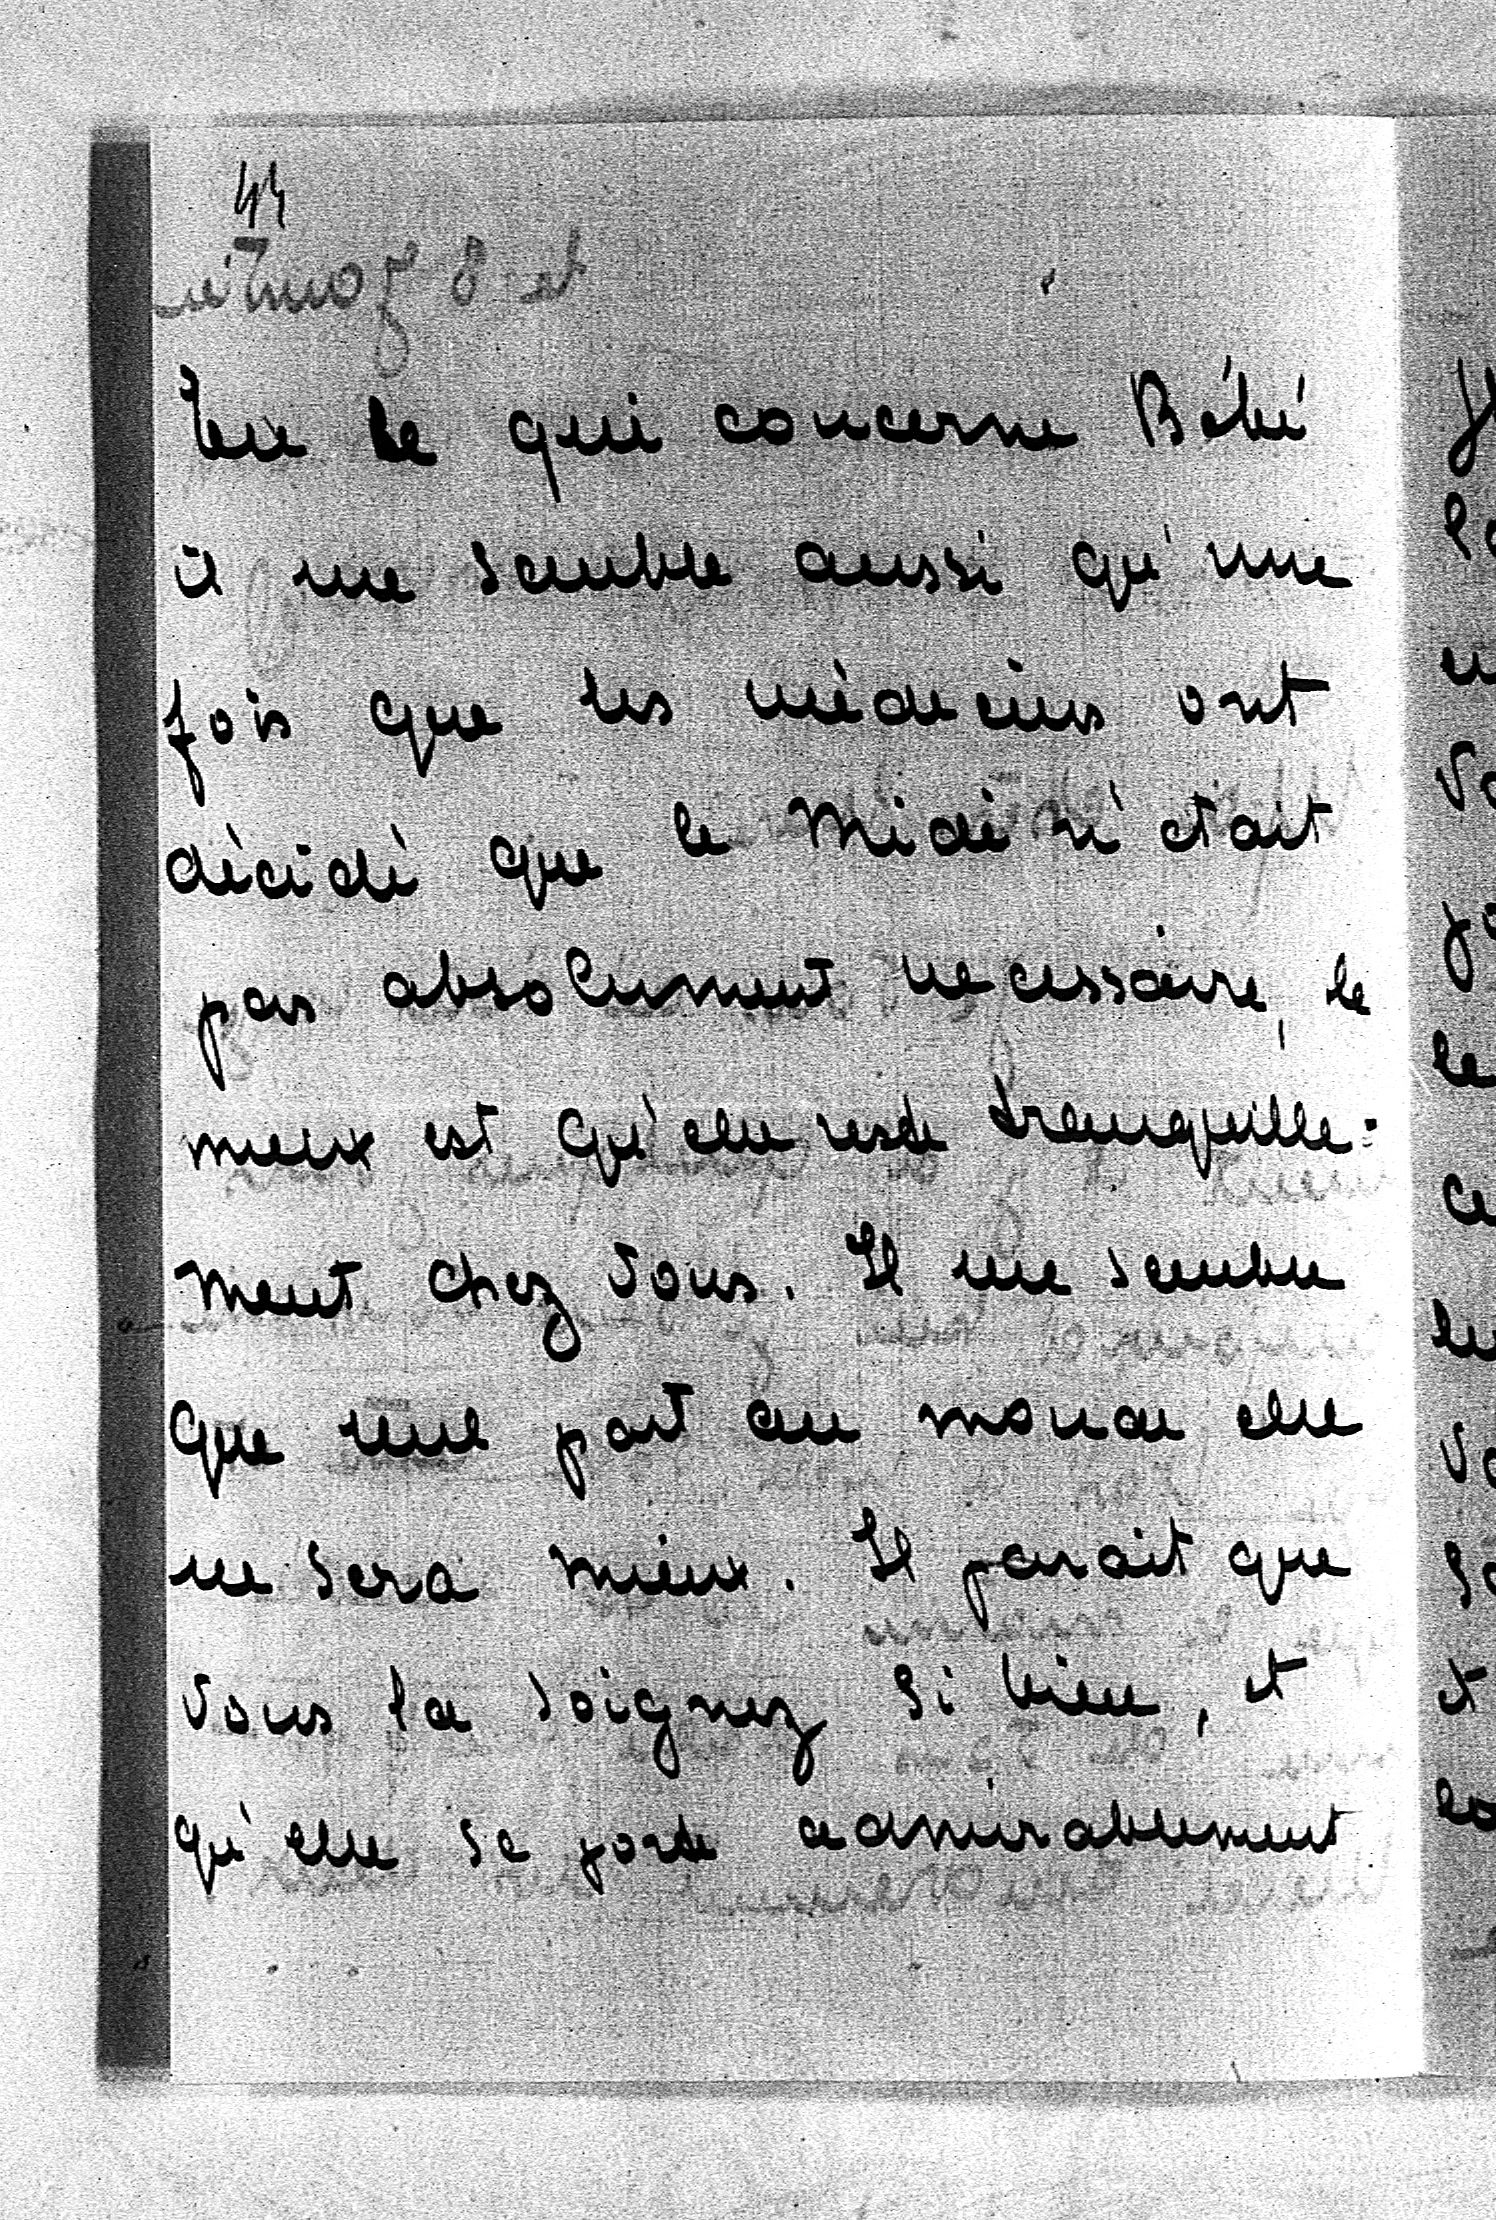 44
En ce qui concerne Bébé
il me semble aussi qu'une
fois que les médecins ont
décidé que le Midi n'était
pas absolument necessaire, le
mieux est qu'elle reste tranquille=
ment chez vous. Il me semble
que nulle part au monde elle
ne sera mieux. Il parait que
vous la soignez si bien, et
qu'elle se porte admirablement